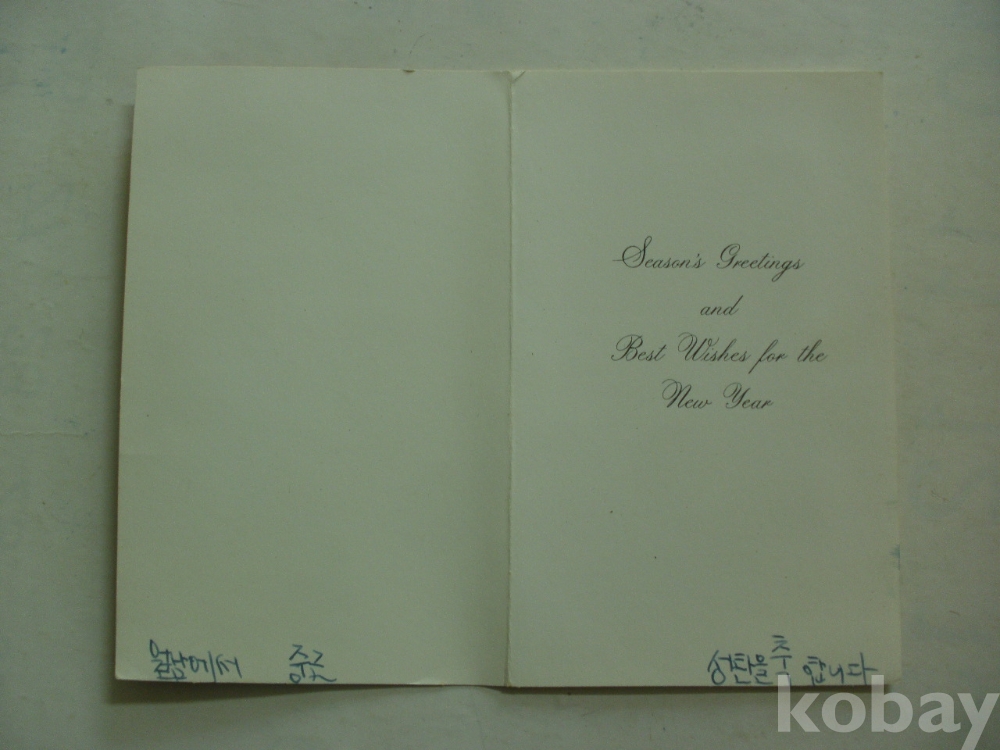 Season's Greetings
and
Best Wishes for the
New Year
월남에서 중군
성탄을 축 합니다
kobay